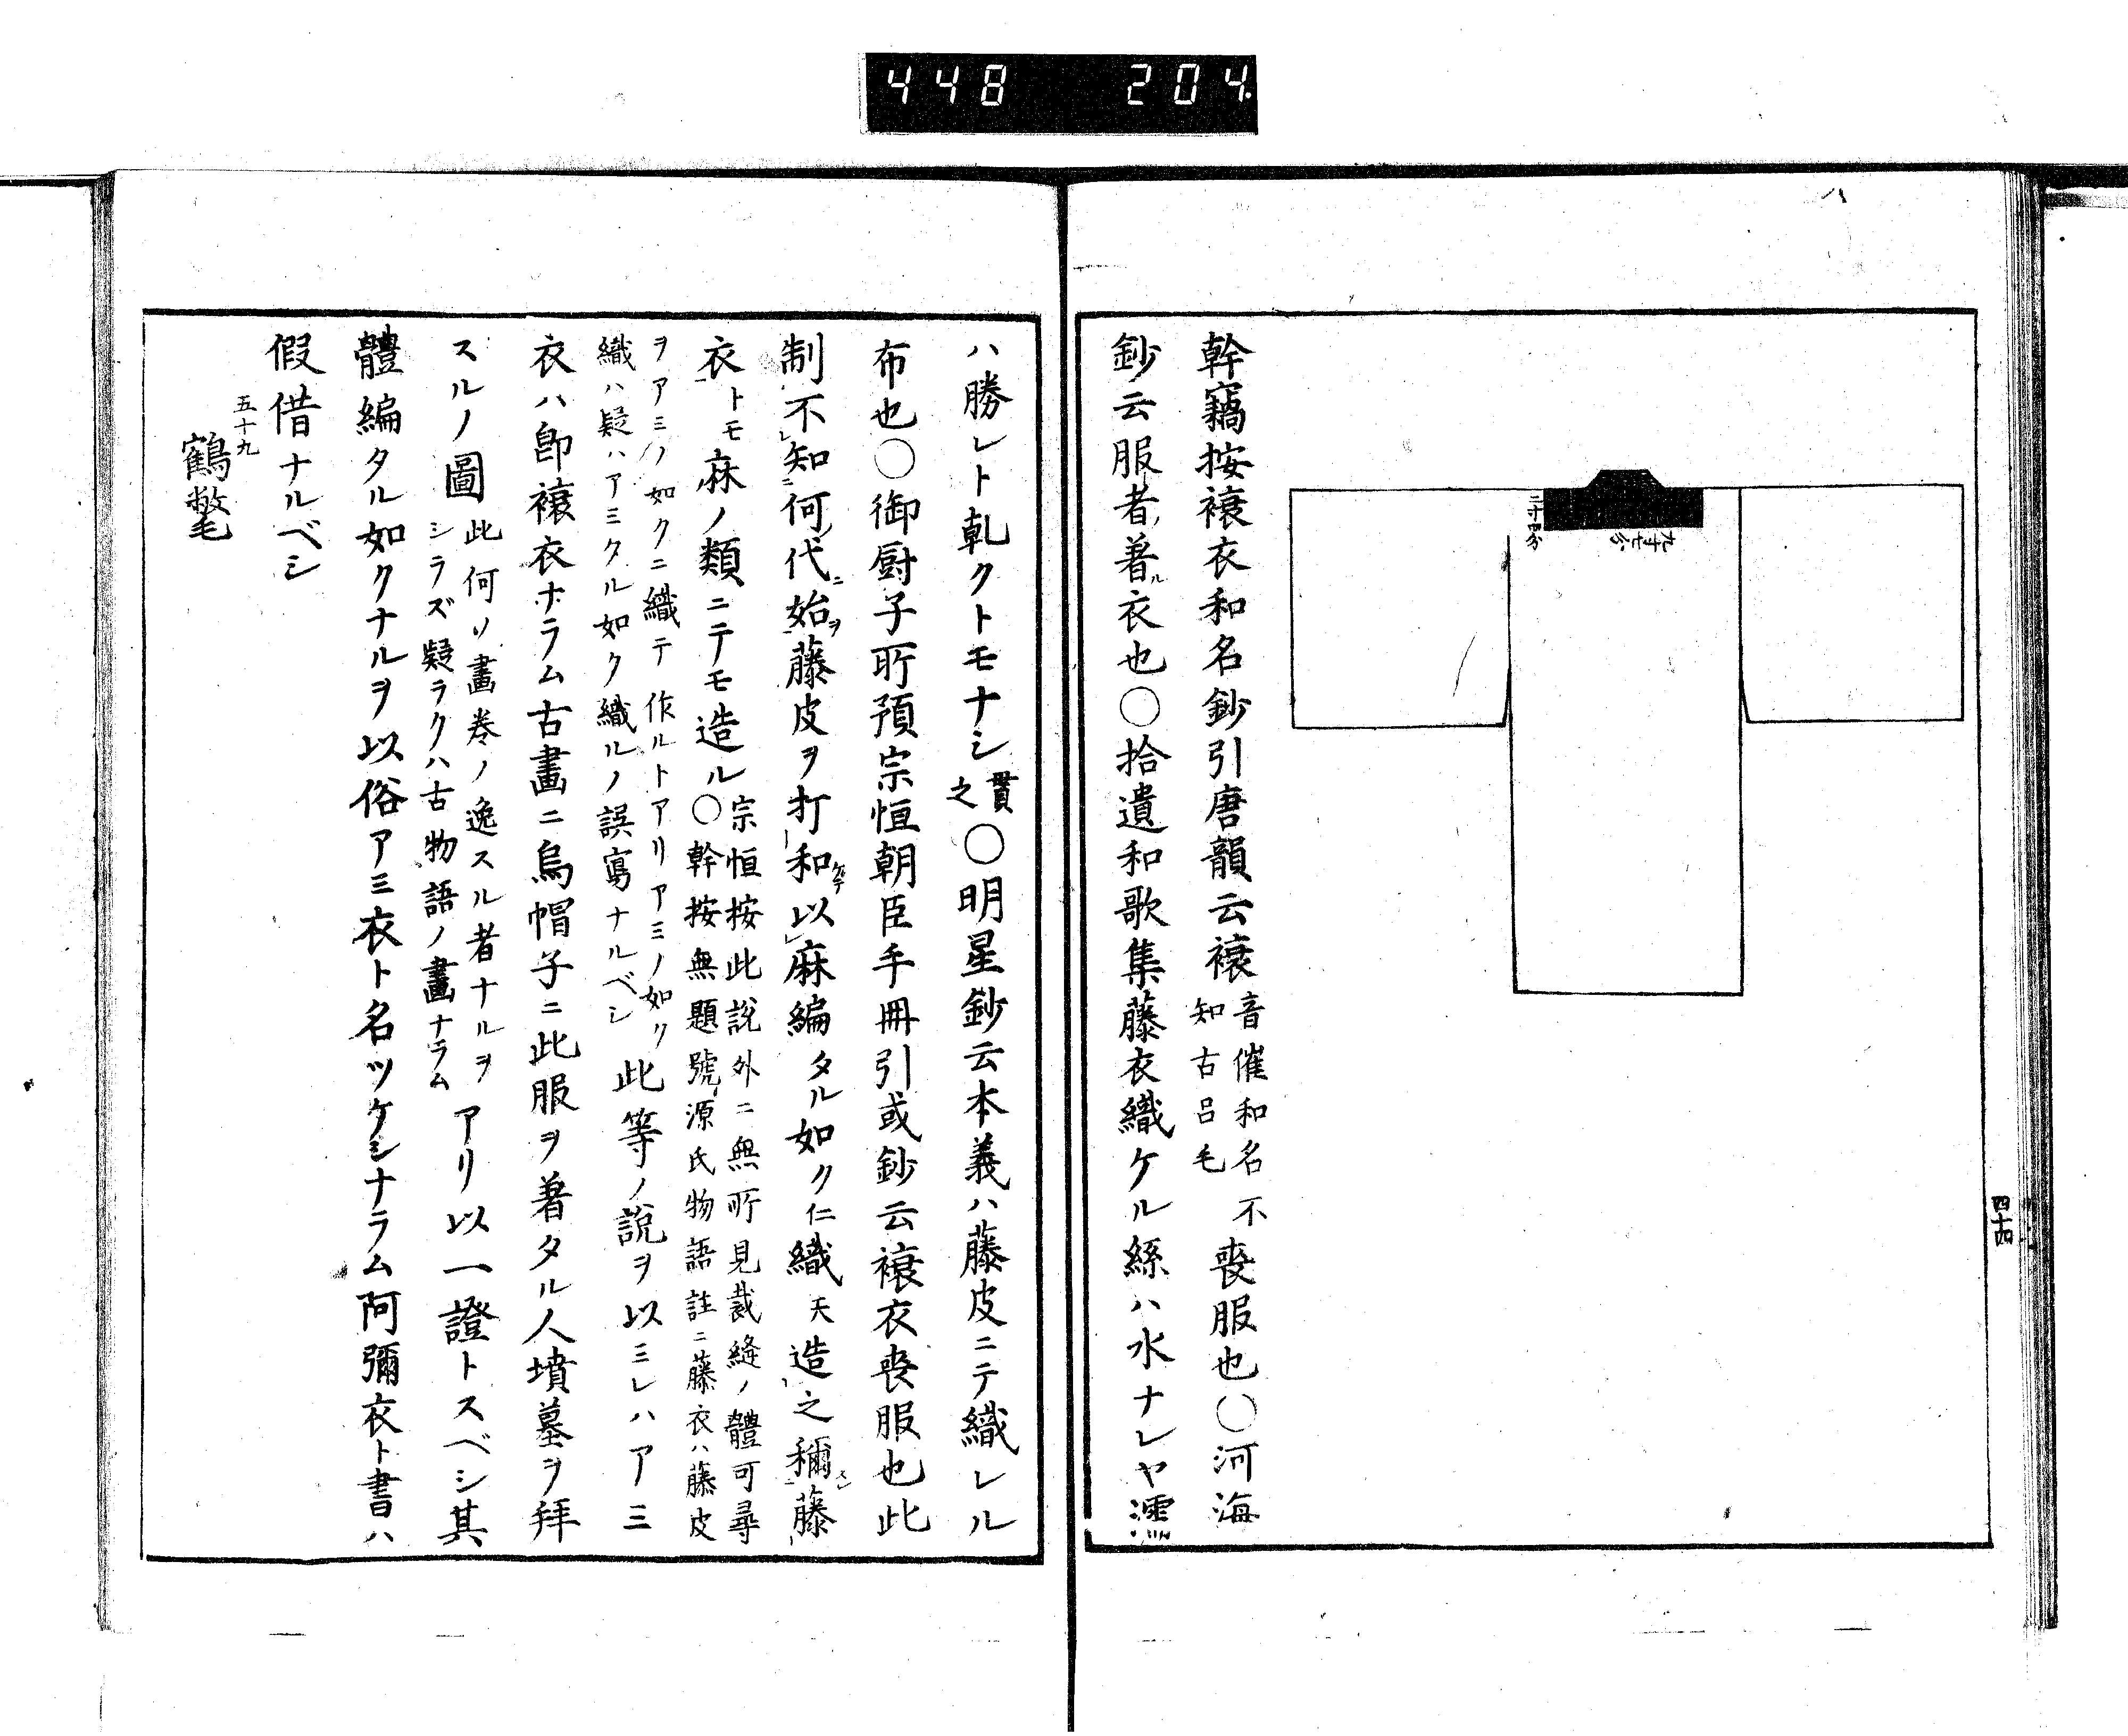 448 204.
二寸四分
九寸七分
幹竊按䙑衣和名鈔引唐韻云䙑
音催和名不
知古呂毛
喪服也〇河海
鈔云服者著ル衣也〇拾遺和歌集藤衣織ケル絲ハ水ナレヤ濡
四十四
ハ勝レト乾クトモナシ
貫
之
〇明星鈔云本義ハ藤皮ニテ織レル
布也〇御厨子所預宗恒朝臣手冊引或鈔云䙑衣喪服也此
制不レ知ニ何代ニ始ヲ藤皮ヲ打和以麻編タル如ク仁織天造之稱藤
衣トモ麻ノ類ニテモ造ル
宗恒按此說外ニ無所見裁縫ノ體可尋
〇幹按無題號源氏物語註ニ藤衣ハ藤皮
ヲアミノ如クニ織テ作ルトアリアミノ如ク
織ハ疑ハアミタル如ク織ルノ誤寫ナルベシ
此等ノ說ヲ以ミレハアミ
衣ハ卽䙑衣ホラム古畫ニ烏帽子ニ此服ヲ著タル人墳墓ヲ拜
スルノ圖
此何ソ畫卷ノ逸スル者ナルヲ
シラズ疑ラクハ古物語ノ畫ナラム
アリ以一證トスベシ其
體編タル如クナルヲ以俗アミ衣ト名ツケシナラム阿彌衣ト書ハ
假借ナルベシ
五十九
鶴氅